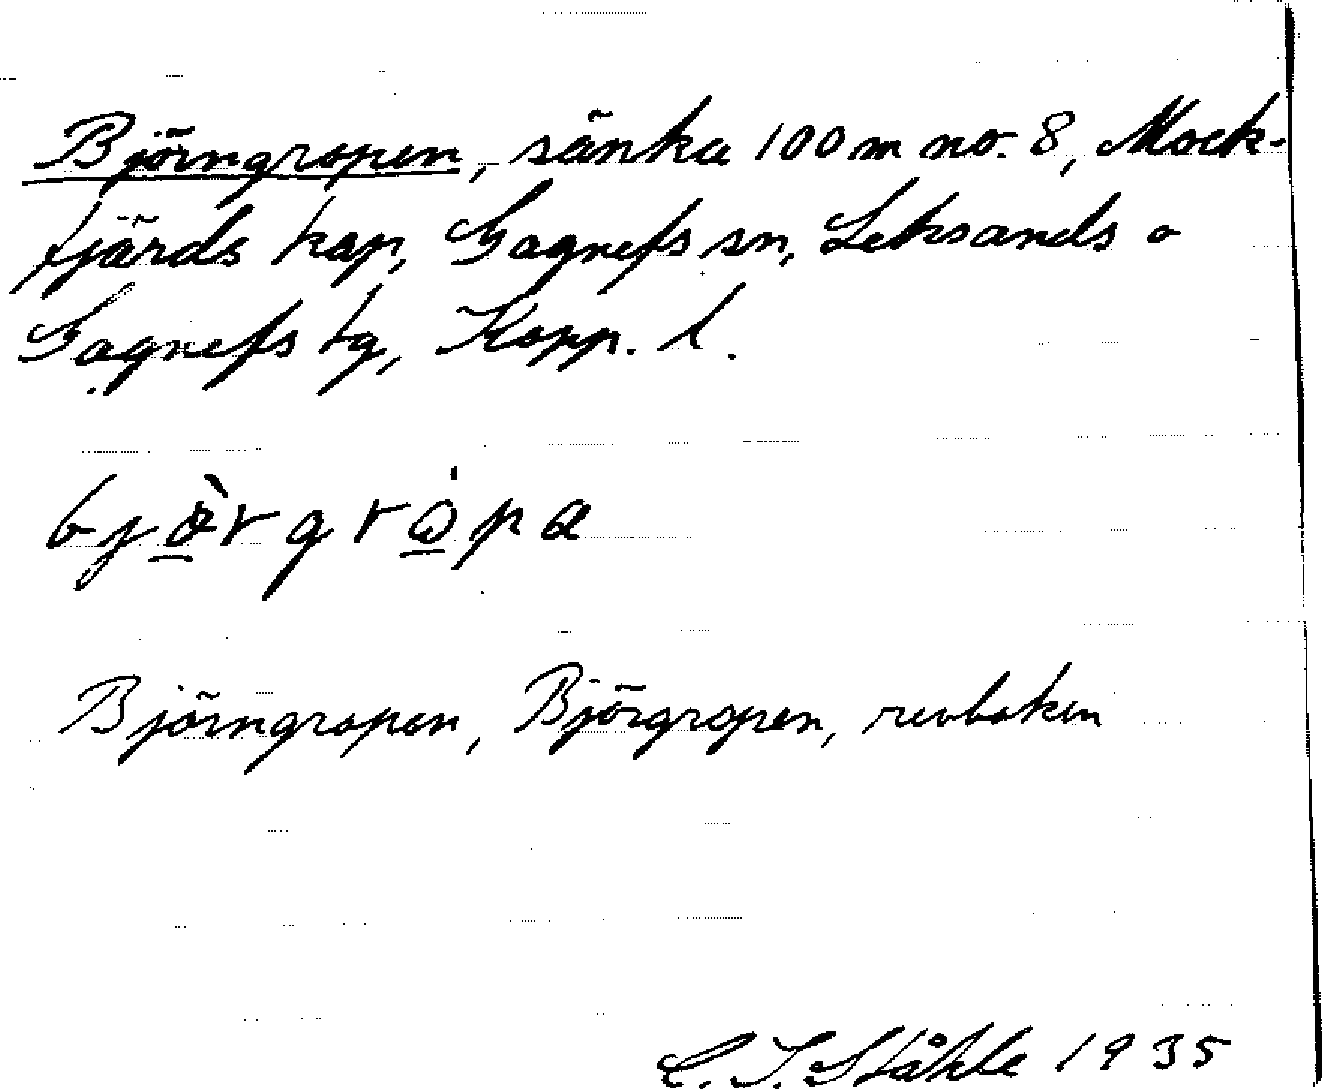 Björngropen, sänka 100 m no. 8, Mock-
fjärds kap, Gagnefs sn, Leksands o
Gagnefs tg, Kopp. l.
bjö̀rgrópa
Björngropen, Björgropen, revboken
C. I. Ståhle 1935